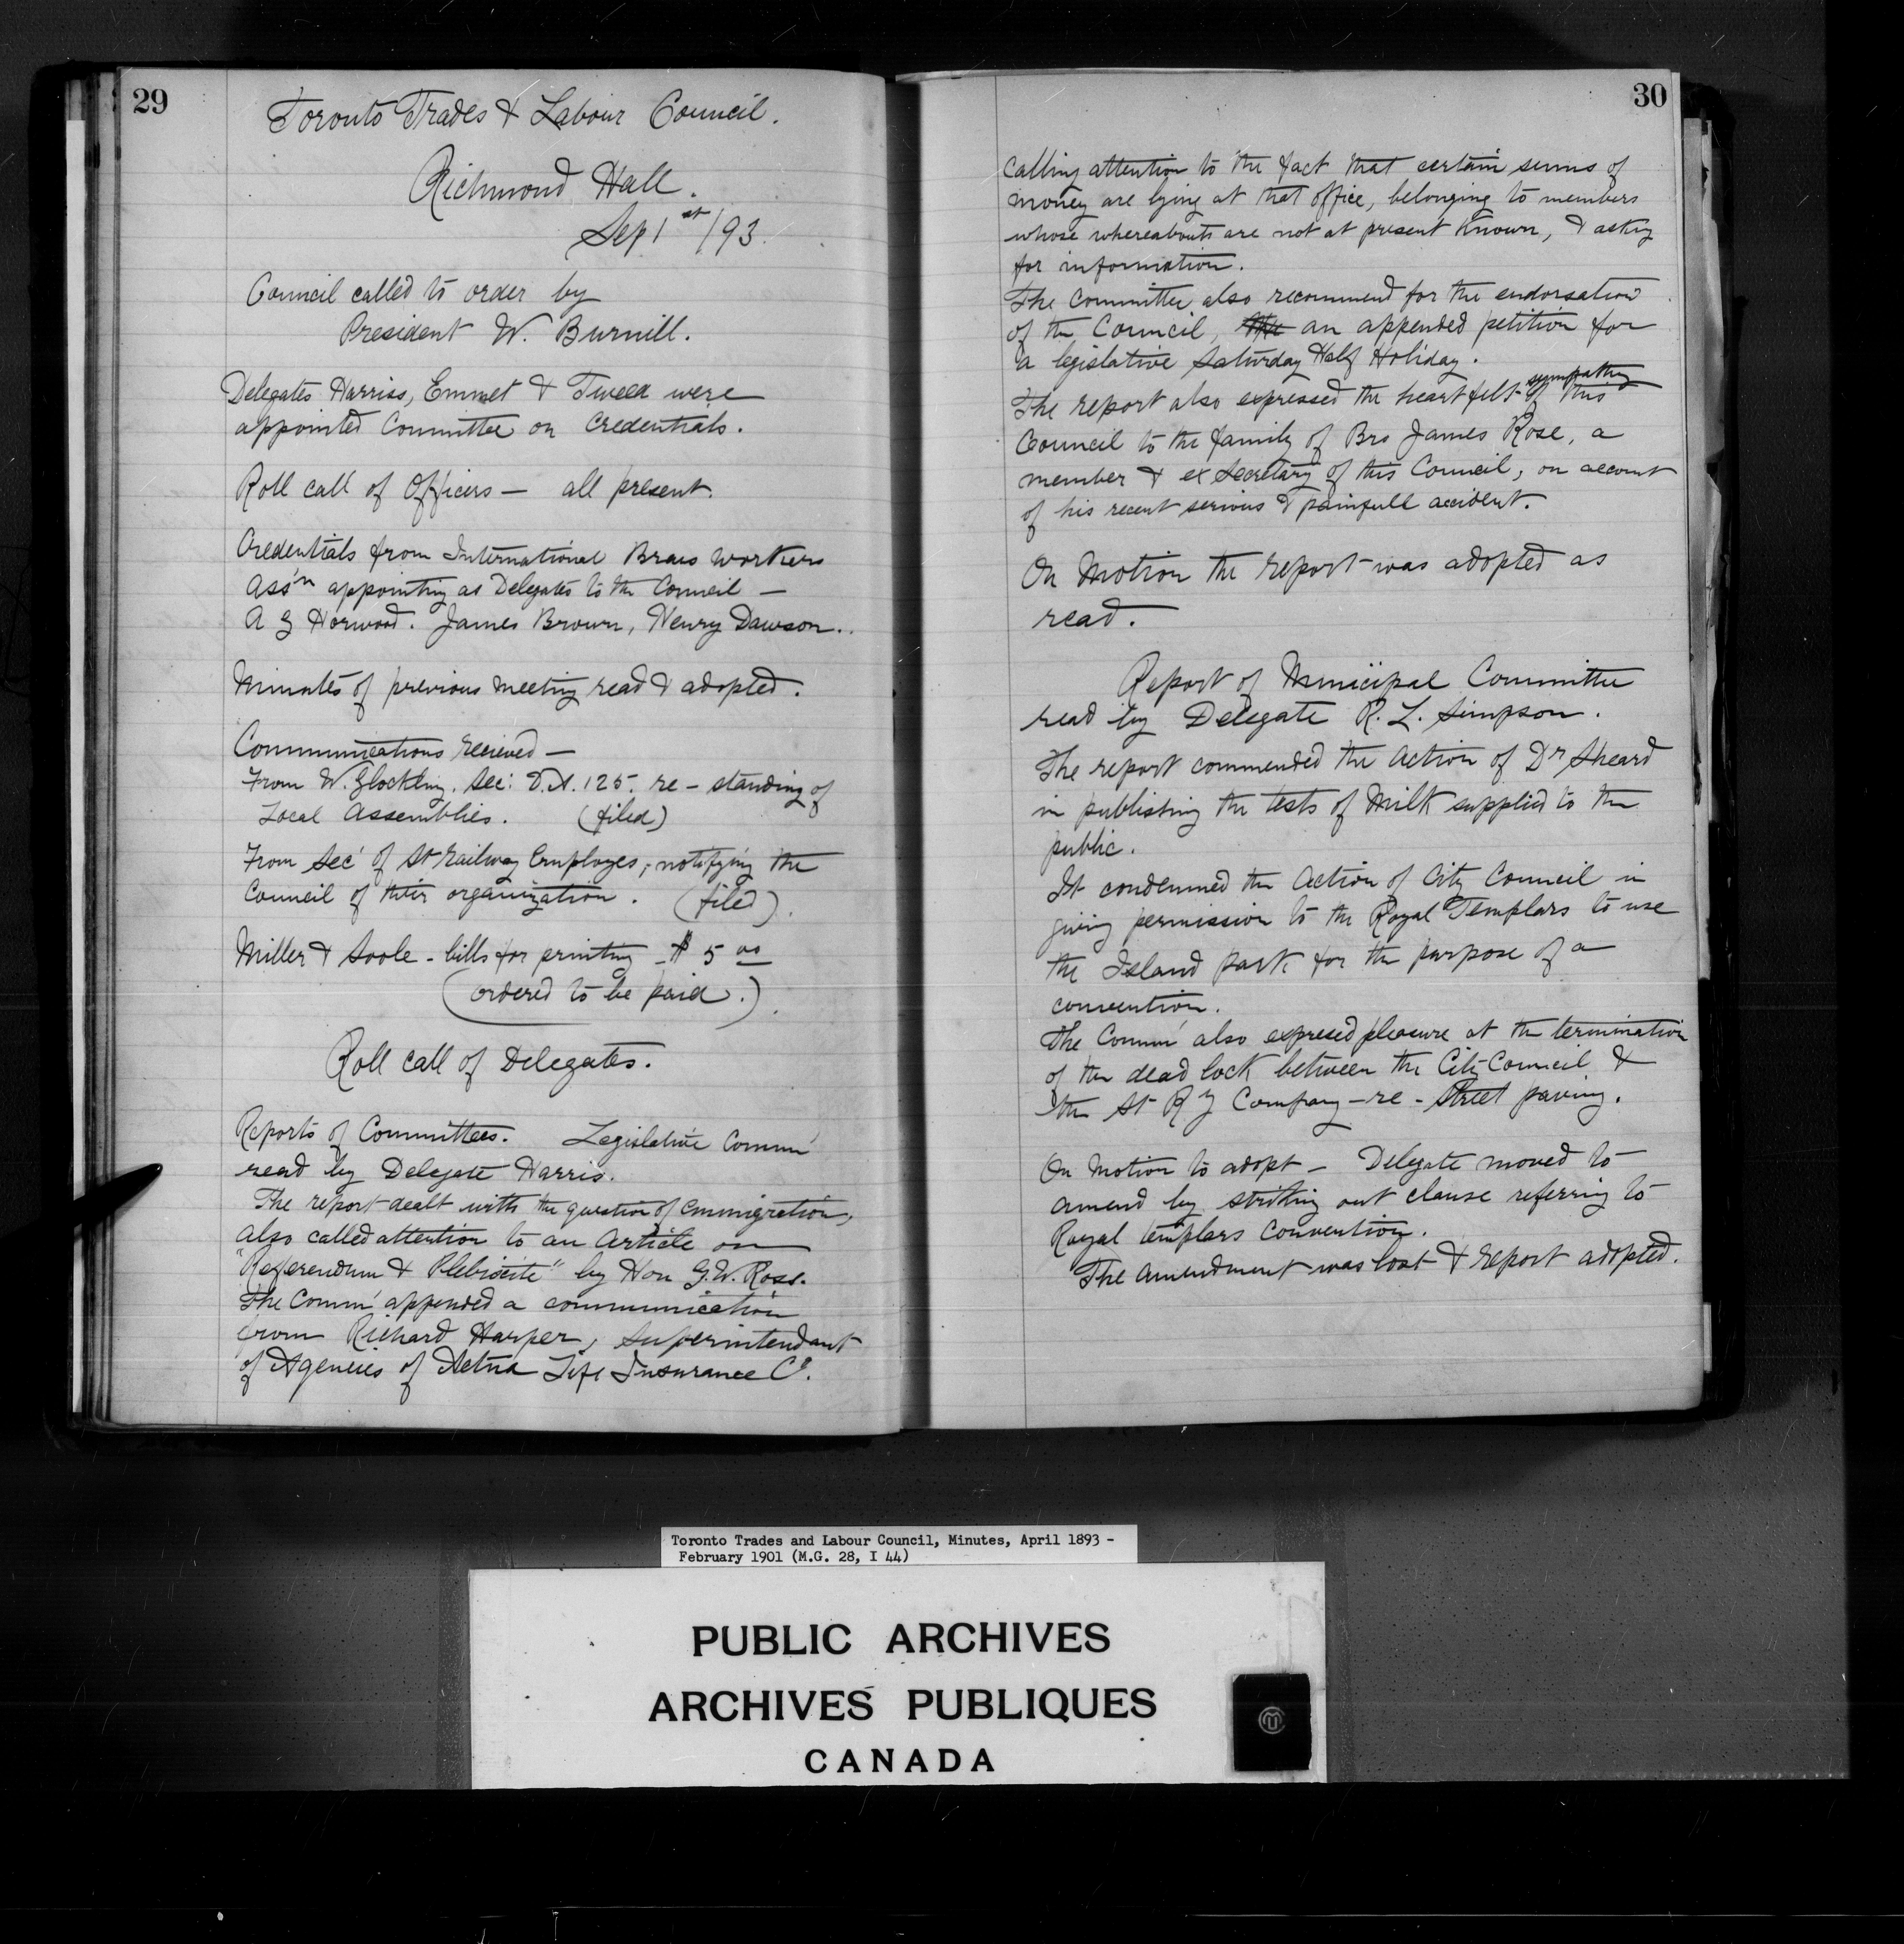 29
Toronto Trades & Labour Council.
Richmond Hall.
Sep 1st/93.
Council called to order by
President W. Burnill.
Delegates Harriss, Emmet & Tweed were
appointed Committee on Credentials.
Roll call of Officers — all present.
Credentials from International Brass Workers
Ass'n appointing as Delegates to the Council —
A G Horwood. James Brown, Henry Dawson.
Minutes of previous meeting read & adopted.
Communications recieved —
From W. Glockling. Sec: D.A. 125. re - standing of
Local Assemblies. (filed)
From Sec' of St Railway Employes, notifying the
Council of their organization. (filed).
Miller & Soole - bills for printing - $ 5 00
(ordered to be paid.).
Roll call of Delegates.
Reports of Committees. Legislative Comm'
read by Delegate Harris.
The report dealt with the question of Emmigration,
also called attention to an Article on
"Referendum & Plebiscite" by Hon G.W. Ross.
The Comm' appended a communication
from Richard Harper, Superintendant
of Agencies of Aetna Life Insurance Co.
30
calling attention to the fact that certain sums of
money are lying at that office, belonging to members
whose whereabouts are not at present known, & asking
for information.
The Committee also recommend for the endorsation
of the Council, the an appended petition for
a legislative Saturday Half Holiday.
The report also expressed the heartfelt sympathy of this
Council to the family of Bro James Rose, a
member & ex Secretary of this Council, on account
of his recent serious & painfull accident.
On Motion the report was adopted as
read.
Report of Municipal Committee
read by Delegate R. L. Simpson.
The report commended the action of Dr Sheard
in publishing the tests of Milk supplied to the
public.
It condemned the Action of City Council in
giving permission to the Royal Templars to use
the Island park for the purpose of a
convention.
The Comm' also expresed pleasure at the termination
of the dead lock between the City Council &
the St Ry Company - re - Street paving.
On Motion to adopt — Delegate moved to
amend by striking out clause referring to
Royal templars Convention.
The amendment was lost & report adopted.
Toronto Trades and Labour Council, Minutes, April 1893 -
February 1901 (M.G. 28, I 44)
PUBLIC ARCHIVES
ARCHIVES PUBLIQUES
CANADA